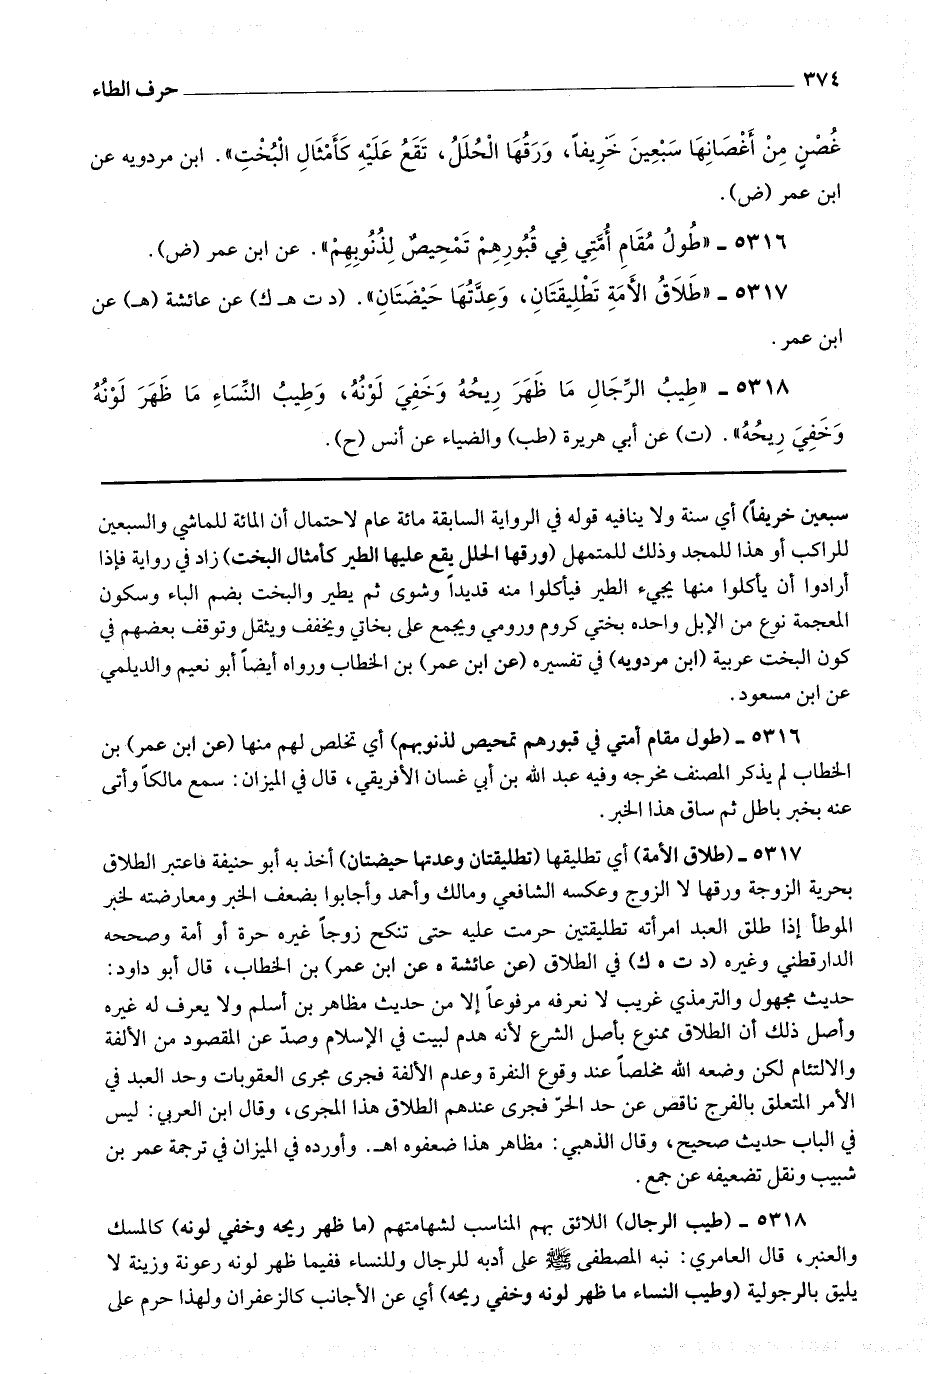 ٣٧٤ حرف الطاء
غُصْنٍ مِنْ أَغْصَانِهَا سَبْعِينَ خَرِيفاً، وَرَقُهَا الْحُلَلُ، تَقَعُ عَلَيْهِ كَأَمْثَالِ الْبُخْتِ». ابن مردويه عن
ابن عمر (ض).
٥٣١٦ ـ «طُولُ مُقَامِ أُمَّتِي فِي قُبُورِهِمْ تَمْحِيصٌ لِذُنُوبِهِمْ». عن ابن عمر (ض).
٥٣١٧ ـ «طَلَاقُ الأَمَةِ تَطْلِيقَتَانِ، وَعِدَّتُهَا حَيْضَتَانِ». (د ت هـ ك) عن عائشة (هـ) عن
ابن عمر.
٥٣١٨ ـ «طِيبُ الرِّجَالِ مَا ظَهَرَ رِيحُهُ وَخَفِيَ لَوْنُهُ، وَطِيبُ النِّسَاءِ مَا ظَهَرَ لَوْنُهُ
وَخَفِيَ رِيحُهُ». (ت) عن أبي هريرة (طب) والضياء عن أنس (ح).
سبعين خريفاً) أي سنة ولا ينافيه قوله في الرواية السابقة مائة عام لاحتمال أن المائة للماشي والسبعين
للراكب أو هذا للمجد وذلك للمتمهل (ورقها الحلل يقع عليها الطير كأمثال البخت) زاد في رواية فإذا
أرادوا أن يأكلوا منها يجيء الطير فيأكلوا منه قديداً وشوى ثم يطير والبخت بضم الباء وسكون
المعجمة نوع من الإبل واحده بختي كروم ورومي ويجمع على بخاتي ويخفف ويثقل وتوقف بعضهم في
كون البخت عربية (ابن مردويه) في تفسيره (عن ابن عمر) بن الخطاب ورواه أيضاً أبو نعيم والديلمي
عن ابن مسعود.
٥٣١٦ ـ (طول مقام أمتي في قبورهم تمحيص لذنوبهم) أي تخلص لهم منها (عن ابن عمر) بن
الخطاب لم يذكر المصنف مخرجه وفيه عبد الله بن أبي غسان الأفريقي، قال في الميزان: سمع مالكاً وأتى
عنه بخبر باطل ثم ساق هذا الخبر.
٥٣١٧ ـ (طلاق الأمة) أي تطليقها (تطليقتان وعدتها حيضتان) أخذ به أبو حنيفة فاعتبر الطلاق
بحرية الزوجة ورقها لا الزوج وعكسه الشافعي ومالك وأحمد وأجابوا بضعف الخبر ومعارضته لخبر
الموطأ إذا طلق العبد امرأته تطليقتين حرمت عليه حتى تنكح زوجاً غيره حرة أو أمة وصححه
الدارقطني وغيره (د ت ه ك) في الطلاق (عن عائشة ه عن ابن عمر) بن الخطاب، قال أبو داود:
حديث مجهول والترمذي غريب لا نعرفه مرفوعاً إلا من حديث مظاهر بن أسلم ولا يعرف له غيره
وأصل ذلك أن الطلاق ممنوع بأصل الشرع لأنه هدم لبيت في الإسلام وصدّ عن المقصود من الألفة
والالتئام لكن وضعه الله مخلصاً عند وقوع النفرة وعدم الألفة فجرى مجرى العقوبات وحد العبد في
الأمر المتعلق بالفرج ناقص عن حد الحرّ فجرى عندهم الطلاق هذا المجرى، وقال ابن العربي: ليس
في الباب حديث صحيح، وقال الذهبي: مظاهر هذا ضعفوه اهـ. وأورده في الميزان في ترجمة عمر بن
شبيب ونقل تضعيفه عن جمع.
٥٣١٨ ـ (طيب الرجال) اللائق بهم المناسب لشهامتهم (ما ظهر ريحه وخفي لونه) كالمسك
والعنبر، قال العامري: نبه المصطفى ﷺ على أدبه للرجال وللنساء ففيما ظهر لونه رعونة وزينة لا
يليق بالرجولية (وطيب النساء ما ظهر لونه وخفي ريحه) أي عن الأجانب كالزعفران ولهذا حرم على